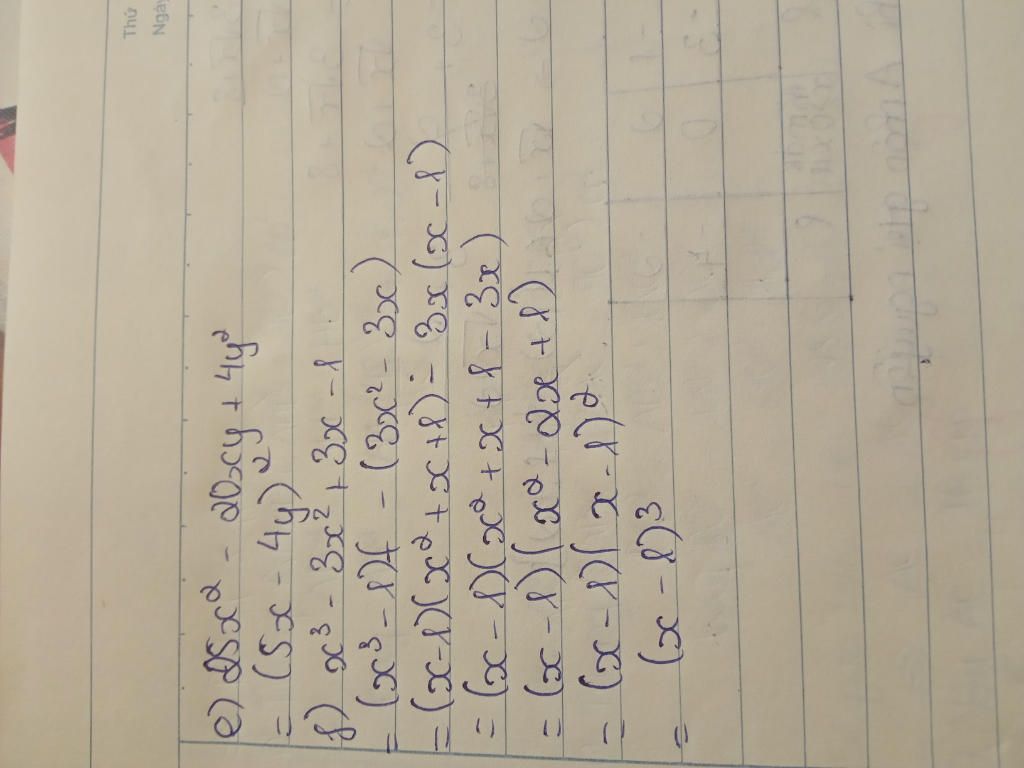 Thứ
Ngày
e) 25x² - 20xy + 4y²
= (5x - 4y)²
f) x³ - 3x² + 3x - 1
= (x³ - 1) - (3x² - 3x)
= (x - 1)(x² + x + 1) - 3x(x - 1)
= (x - 1)(x² + x + 1 - 3x)
= (x - 1)(x² - 2x + 1)
= (x - 1)(x - 1)²
= (x - 1)³